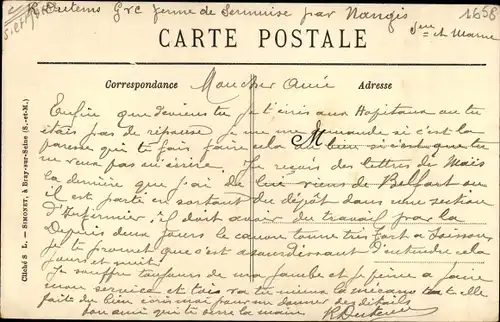 R Dutems Gre ferme de Sermaise par Nangis
Sne et Marne
1658
CARTE POSTALE
Correspondance
Adresse
Mon cher Amie
Enfin que deviens tu je t'écris aux Hopitaux ou tu
étais pas de réponse je me demande si c'est la
M
paresse qui te fais faire cela ou bien si c'est que tu
ne veux pas m'écrire. Je reçois des lettres de Maïs
la dernière que j'ai de lui viens de Belfort ou
il est partie en sortant du dépôt dans une section
d'Infirmier, il doit avoir du travail par la
Depuis deux jours le canon tonne très fort a Soissons
je te promet que c'est assourdissant d'entendre cela
jours et nuit.
Je souffre toujours de ma jambe et je peine a faire
mon service et toi va tu mieux la mécano t'a t elle
faite du bien écris moi pour me donner des détails
ton ami qui te serre la main
Cliché S L. — SIMONET, à Bray-sur-Seine (S.-et-M.)